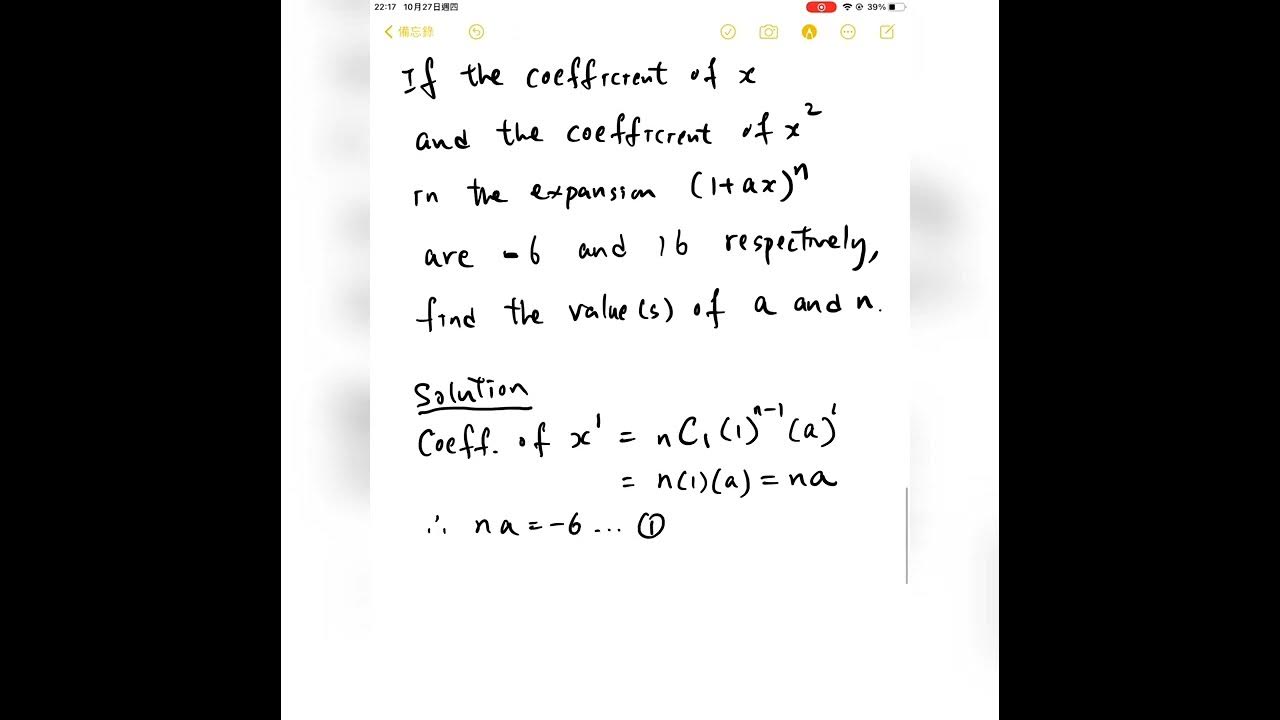 22:17 10月27日週四
39%
備忘錄
If the coefficient of x
and the coefficient of x²
in the expansion (1+ax)ⁿ
are -6 and 16 respectively,
find the value(s) of a and n.
Solution
Coeff. of x¹ = nC₁(1)ⁿ⁻¹(a)¹
= n(1)(a) = na
∴ na = -6 ... ①